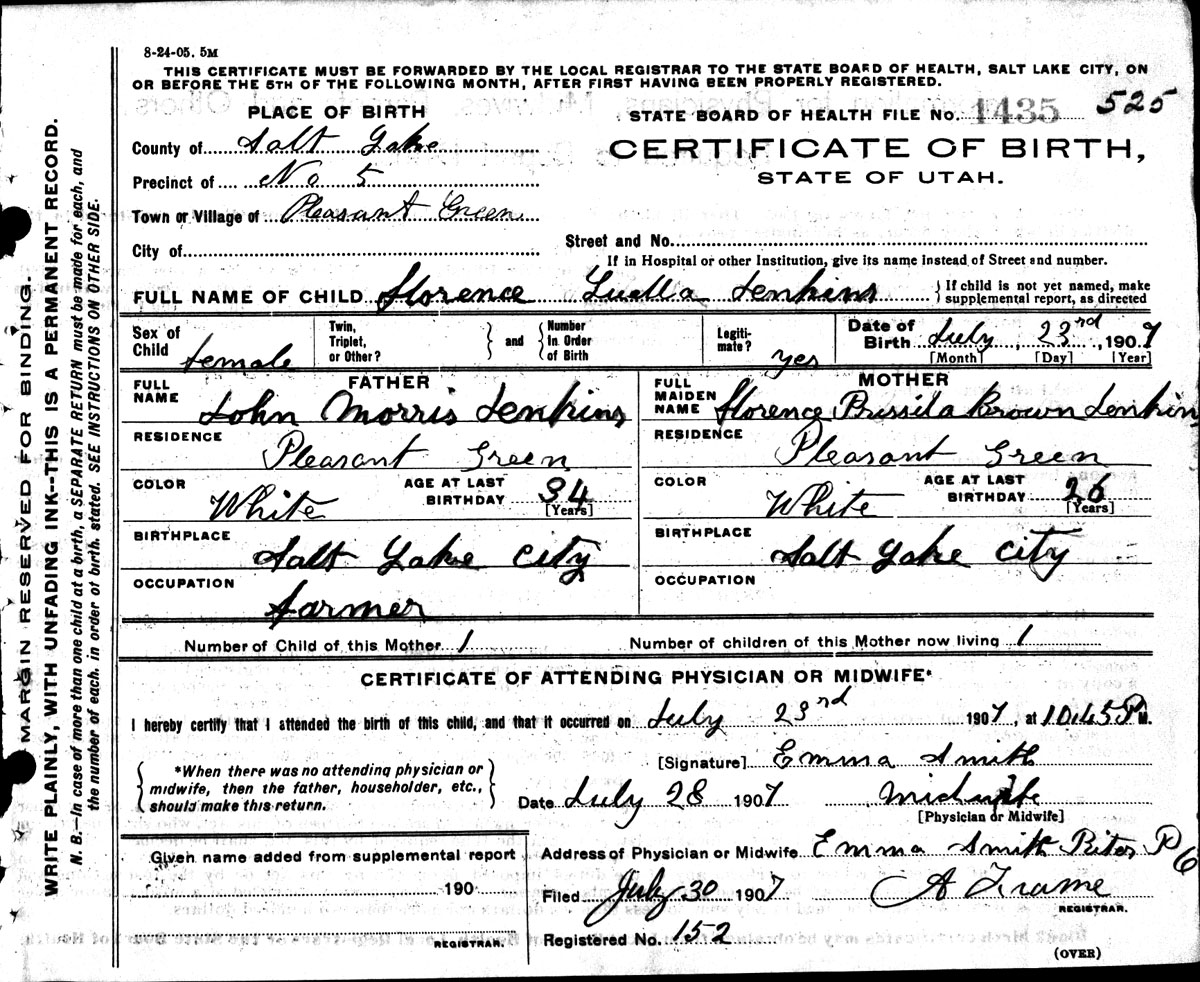 8-24-05. 5M
THIS CERTIFICATE MUST BE FORWARDED BY THE LOCAL REGISTRAR TO THE STATE BOARD OF HEALTH, SALT LAKE CITY, ON
OR BEFORE THE 5TH OF THE FOLLOWING MONTH, AFTER FIRST HAVING BEEN PROPERLY REGISTERED.
525
PLACE OF BIRTH
STATE BOARD OF HEALTH FILE No. 1435
County of Salt Lake
CERTIFICATE OF BIRTH,
Precinct of No 5
STATE OF UTAH.
Town or Village of Pleasant Green
City of
Street and No.
If in Hospital or other Institution, give its name instead of Street and number.
FULL NAME OF CHILD Florence Luella Jenkins } If child is not yet named, make supplemental report, as directed
Sex of Child female
Twin, Triplet, or Other? } and { Number In Order of Birth
Legitimate? yes
Date of Birth July, 23rd, 1907
[Month] [Day] [Year]
FATHER
FULL NAME John Morris Jenkins
RESIDENCE Pleasant Green
COLOR White AGE AT LAST BIRTHDAY 34 [Years]
BIRTHPLACE Salt Lake City
OCCUPATION farmer
MOTHER
FULL MAIDEN NAME Florence Prissila Brown Jenkins
RESIDENCE Pleasant Green
COLOR White AGE AT LAST BIRTHDAY 26 [Years]
BIRTHPLACE Salt Lake City
OCCUPATION
Number of Child of this Mother 1 Number of children of this Mother now living 1
CERTIFICATE OF ATTENDING PHYSICIAN OR MIDWIFE*
I hereby certify that I attended the birth of this child, and that it occurred on July 23rd 1907, at 10.45 P M.
{ *When there was no attending physician or
midwife, then the father, householder, etc.,
should make this return. }
[Signature] Emma Smith
Date July 28 1907 Midwife
[Physician or Midwife]
Given name added from supplemental report
190
REGISTRAR.
Address of Physician or Midwife Emma Smith Riter P
Filed July 30 1907 A Frame
REGISTRAR.
Registered No. 152
(OVER)
MARGIN RESERVED FOR BINDING.
WRITE PLAINLY, WITH UNFADING INK--THIS IS A PERMANENT RECORD.
N. B.—In case of more than one child at a birth, a SEPARATE RETURN must be made for each, and
the number of each, in order of birth, stated. SEE INSTRUCTIONS ON OTHER SIDE.